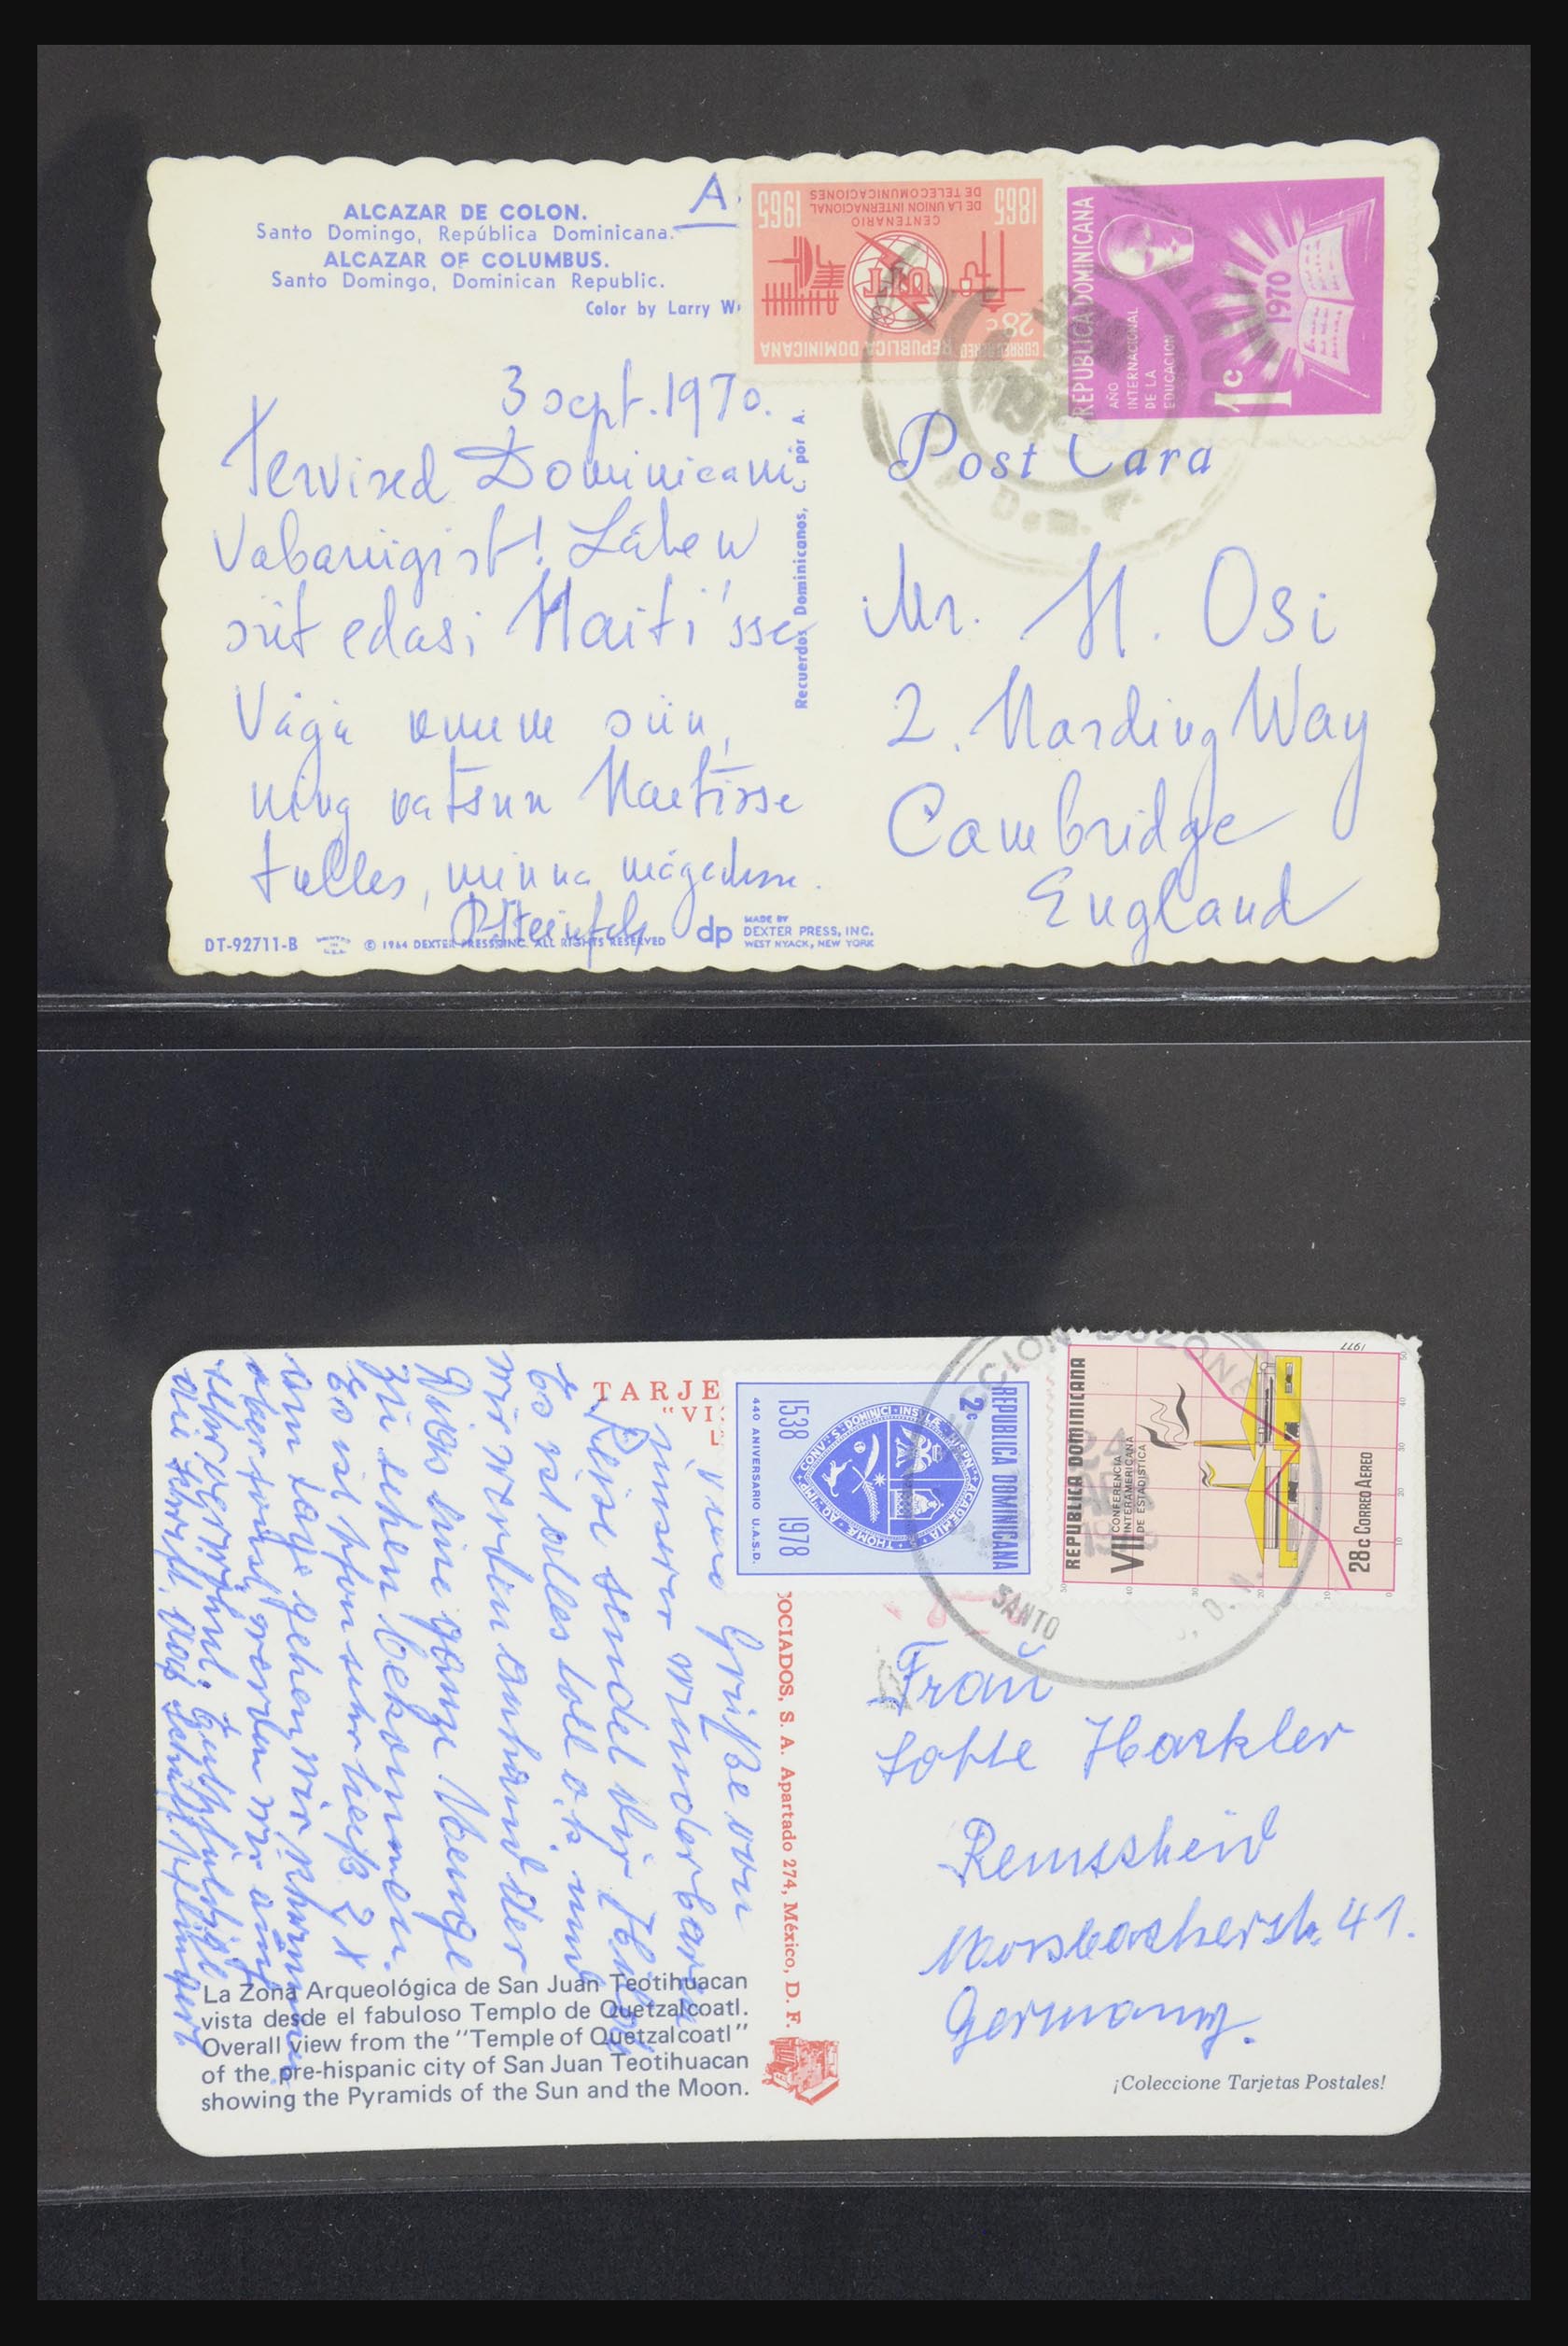 ALCAZAR DE COLON.
Santo Domingo, República Dominicana.
ALCAZAR OF COLUMBUS.
Santo Domingo, Dominican Republic.
Color by Larry
A.
1865 1965
CENTENARIO
DE LA UNION INTERNACIONAL
DE TELECOMUNICACIONES
UIT
28c
CORREO AEREO REPUBLICA DOMINICANA
REPUBLICA DOMINICANA
AÑO
INTERNACIONAL
DE LA
EDUCACION
1970
1c
3 sept. 1970.
Tervised Dominicani
Vabariigist! Lähen
siit edasi Haiti'sse
Väga kuum siin,
ning
tulles, minna mägedesse.
Recuerdos Dominicanos, C. por A.
Post Card
Mr. H. Osi
2. Harding Way
Cambridge
England
DT-92711-B
© 1964 DEXTER PRESS, INC. ALL RIGHTS RESERVED
dp
MADE BY
DEXTER PRESS, INC.
WEST NYACK, NEW YORK
TARJE
"VI
REPUBLICA DOMINICANA
2c
1538 1978
440 ANIVERSARIO U.A.S.D.
REPUBLICA DOMINICANA
VII CONFERENCIA
INTERAMERICANA
DE ESTADISTICA
28c CORREO AEREO
1977
SANTO
D. N.
Grüße von
unserer wunderbaren
Reise sendet Dir
Es ist alles toll o.k. und
wir werden anhand der
Dias eine ganze Menge
zu sehen bekommen.
Es ist schon sehr heiß 2 x
am Tage gehen wir schwimmen
OCIADOS, S. A. Apartado 274, México, D. F.
Frau
Lotte Hackler
Remscheid
Morsbacherstr. 41.
Germany.
La Zona Arqueológica de San Juan Teotihuacan
vista desde el fabuloso Templo de Quetzalcoatl.
Overall view from the "Temple of Quetzalcoatl"
of the pre-hispanic city of San Juan Teotihuacan
showing the Pyramids of the Sun and the Moon.
¡Coleccione Tarjetas Postales!